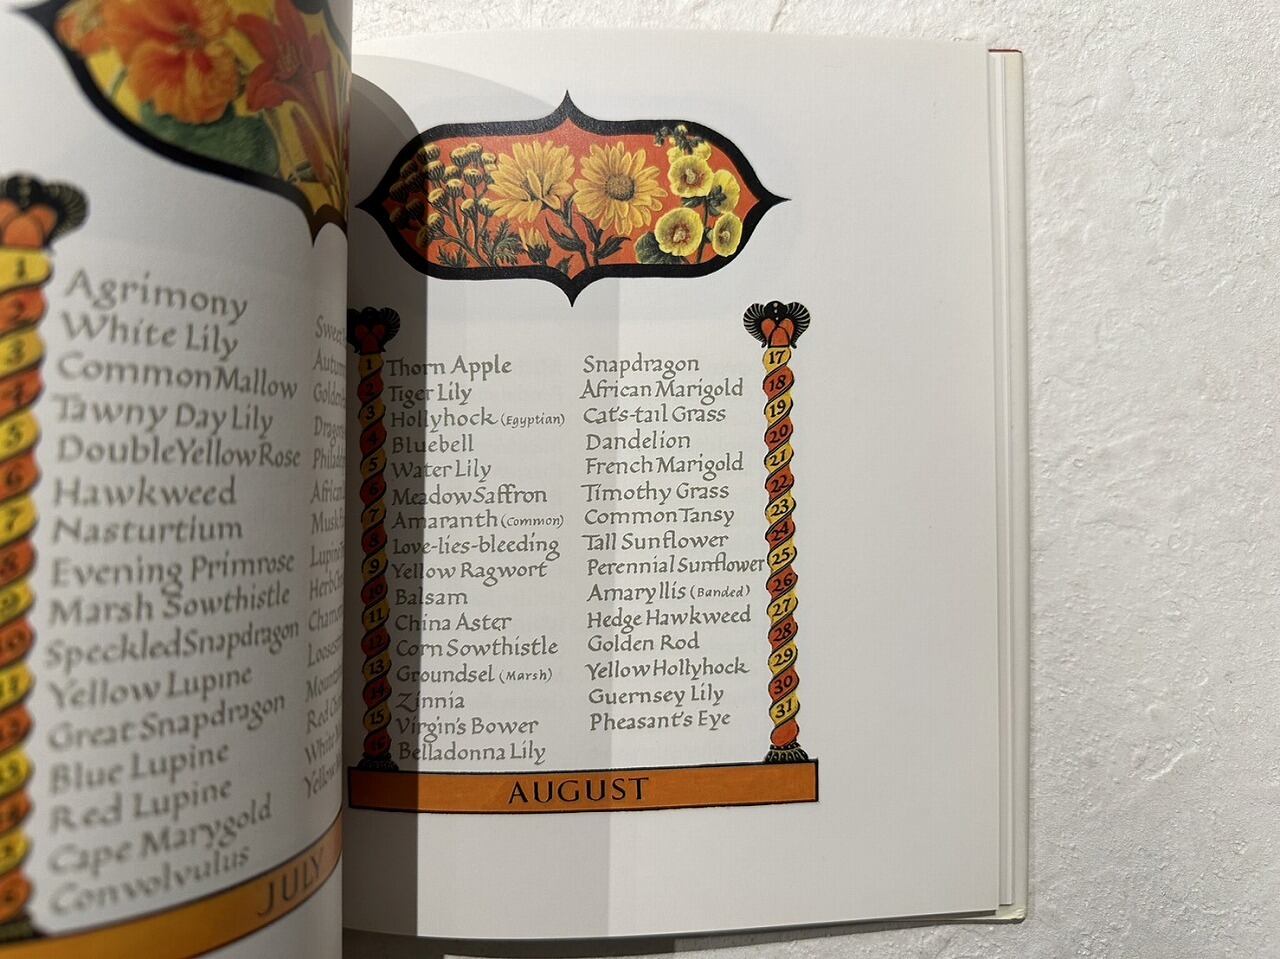 1 Agrimony
2 White Lily
3 Common Mallow
4 Tawny Day Lily
5 Double Yellow Rose
6 Hawkweed
7 Nasturtium
8 Evening Primrose
9 Marsh Sowthistle
10 Speckled Snapdragon
11 Yellow Lupine
Great Snapdragon
13 Blue Lupine
Red Lupine
Cape Marygold
Convolvulus
JULY
1 Thorn Apple
2 Tiger Lily
3 Hollyhock (Egyptian)
4 Bluebell
5 Water Lily
6 Meadow Saffron
7 Amaranth (Common)
8 Love-lies-bleeding
9 Yellow Ragwort
10 Balsam
11 China Aster
12 Corn Sowthistle
13 Groundsel (Marsh)
14 Zinnia
15 Virgin's Bower
16 Belladonna Lily
Snapdragon 17
African Marigold 18
Cat's-tail Grass 19
Dandelion 20
French Marigold 21
Timothy Grass 22
Common Tansy 23
Tall Sunflower 24
Perennial Sunflower 25
Amaryllis (Banded) 26
Hedge Hawkweed 27
Golden Rod 28
Yellow Hollyhock 29
Guernsey Lily 30
Pheasant's Eye 31
AUGUST